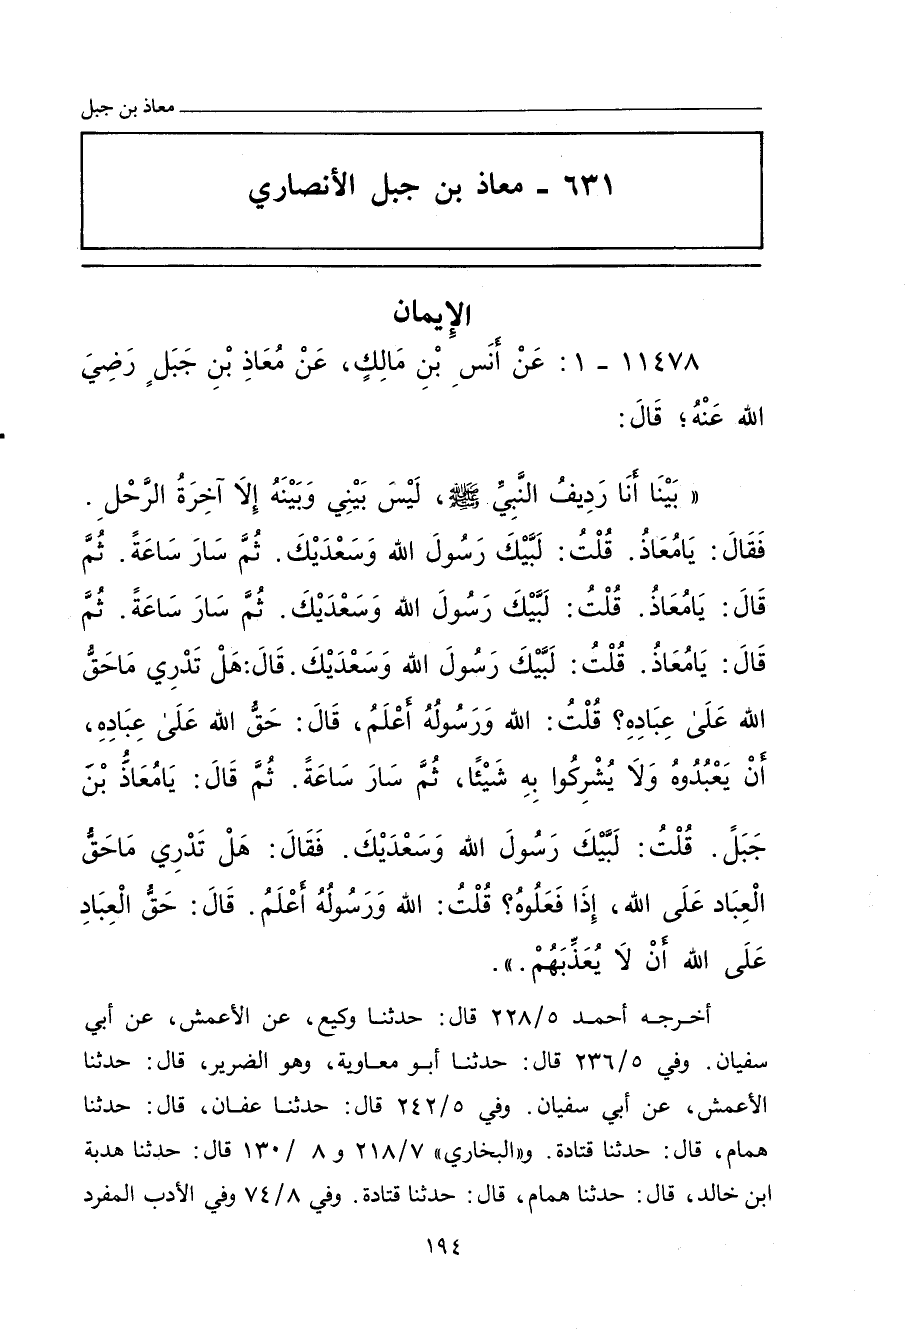 معاذ بن جبل
٦٣١ ـ معاذ بن جبل الأنصاري
الإيمان
١١٤٧٨ ـ ١ : عَنْ أَنَسِ بْنِ مَالِكٍ، عَنْ مُعَاذِ بْنِ جَبَلٍ رَضِيَ
الله عَنْهُ؛ قَالَ:
« بَيْنَا أَنَا رَدِيفُ النَّبِيِّ ﷺ، لَيْسَ بَيْنِي وَبَيْنَهُ إِلَّا آخِرَةُ الرَّحْلِ .
فَقَالَ: يَامُعَاذُ. قُلْتُ: لَبَّيْكَ رَسُولَ الله وَسَعْدَيْكَ. ثُمَّ سَارَ سَاعَةً. ثُمَّ
قَالَ: يَامُعَاذُ. قُلْتُ: لَبَّيْكَ رَسُولَ الله وَسَعْدَيْكَ. ثُمَّ سَارَ سَاعَةً. ثُمَّ
قَالَ: يَامُعَاذُ. قُلْتُ: لَبَّيْكَ رَسُولَ الله وَسَعْدَيْكَ. قَالَ: هَلْ تَدْرِي مَاحَقُّ
الله عَلَىٰ عِبَادِهِ؟ قُلْتُ: الله وَرَسُولُهُ أَعْلَمُ، قَالَ: حَقُّ الله عَلَىٰ عِبَادِهِ،
أَنْ يَعْبُدُوهُ وَلَا يُشْرِكُوا بِهِ شَيْئًا، ثُمَّ سَارَ سَاعَةً. ثُمَّ قَالَ: يَامُعَاذُ بْنَ
جَبَلٍ. قُلْتُ: لَبَّيْكَ رَسُولَ الله وَسَعْدَيْكَ. فَقَالَ: هَلْ تَدْرِي مَاحَقُّ
الْعِبَادِ عَلَى الله، إِذَا فَعَلُوهُ؟ قُلْتُ: الله وَرَسُولُهُ أَعْلَمُ. قَالَ: حَقُّ الْعِبَادِ
عَلَى الله أَنْ لَا يُعَذِّبَهُمْ.».
أخرجه أحمد ٥/٢٢٨ قال: حدثنا وكيع، عن الأعمش، عن أبي
سفيان. وفي ٥/٢٣٦ قال: حدثنا أبو معاوية، وهو الضرير، قال: حدثنا
الأعمش، عن أبي سفيان. وفي ٥/٢٤٢ قال: حدثنا عفان، قال: حدثنا
همام، قال: حدثنا قتادة. و«البخاري» ٧/٢١٨ و ٨ /١٣٠ قال: حدثنا هدبة
ابن خالد، قال: حدثنا همام، قال: حدثنا قتادة. وفي ٨/٧٤ وفي الأدب المفرد
١٩٤